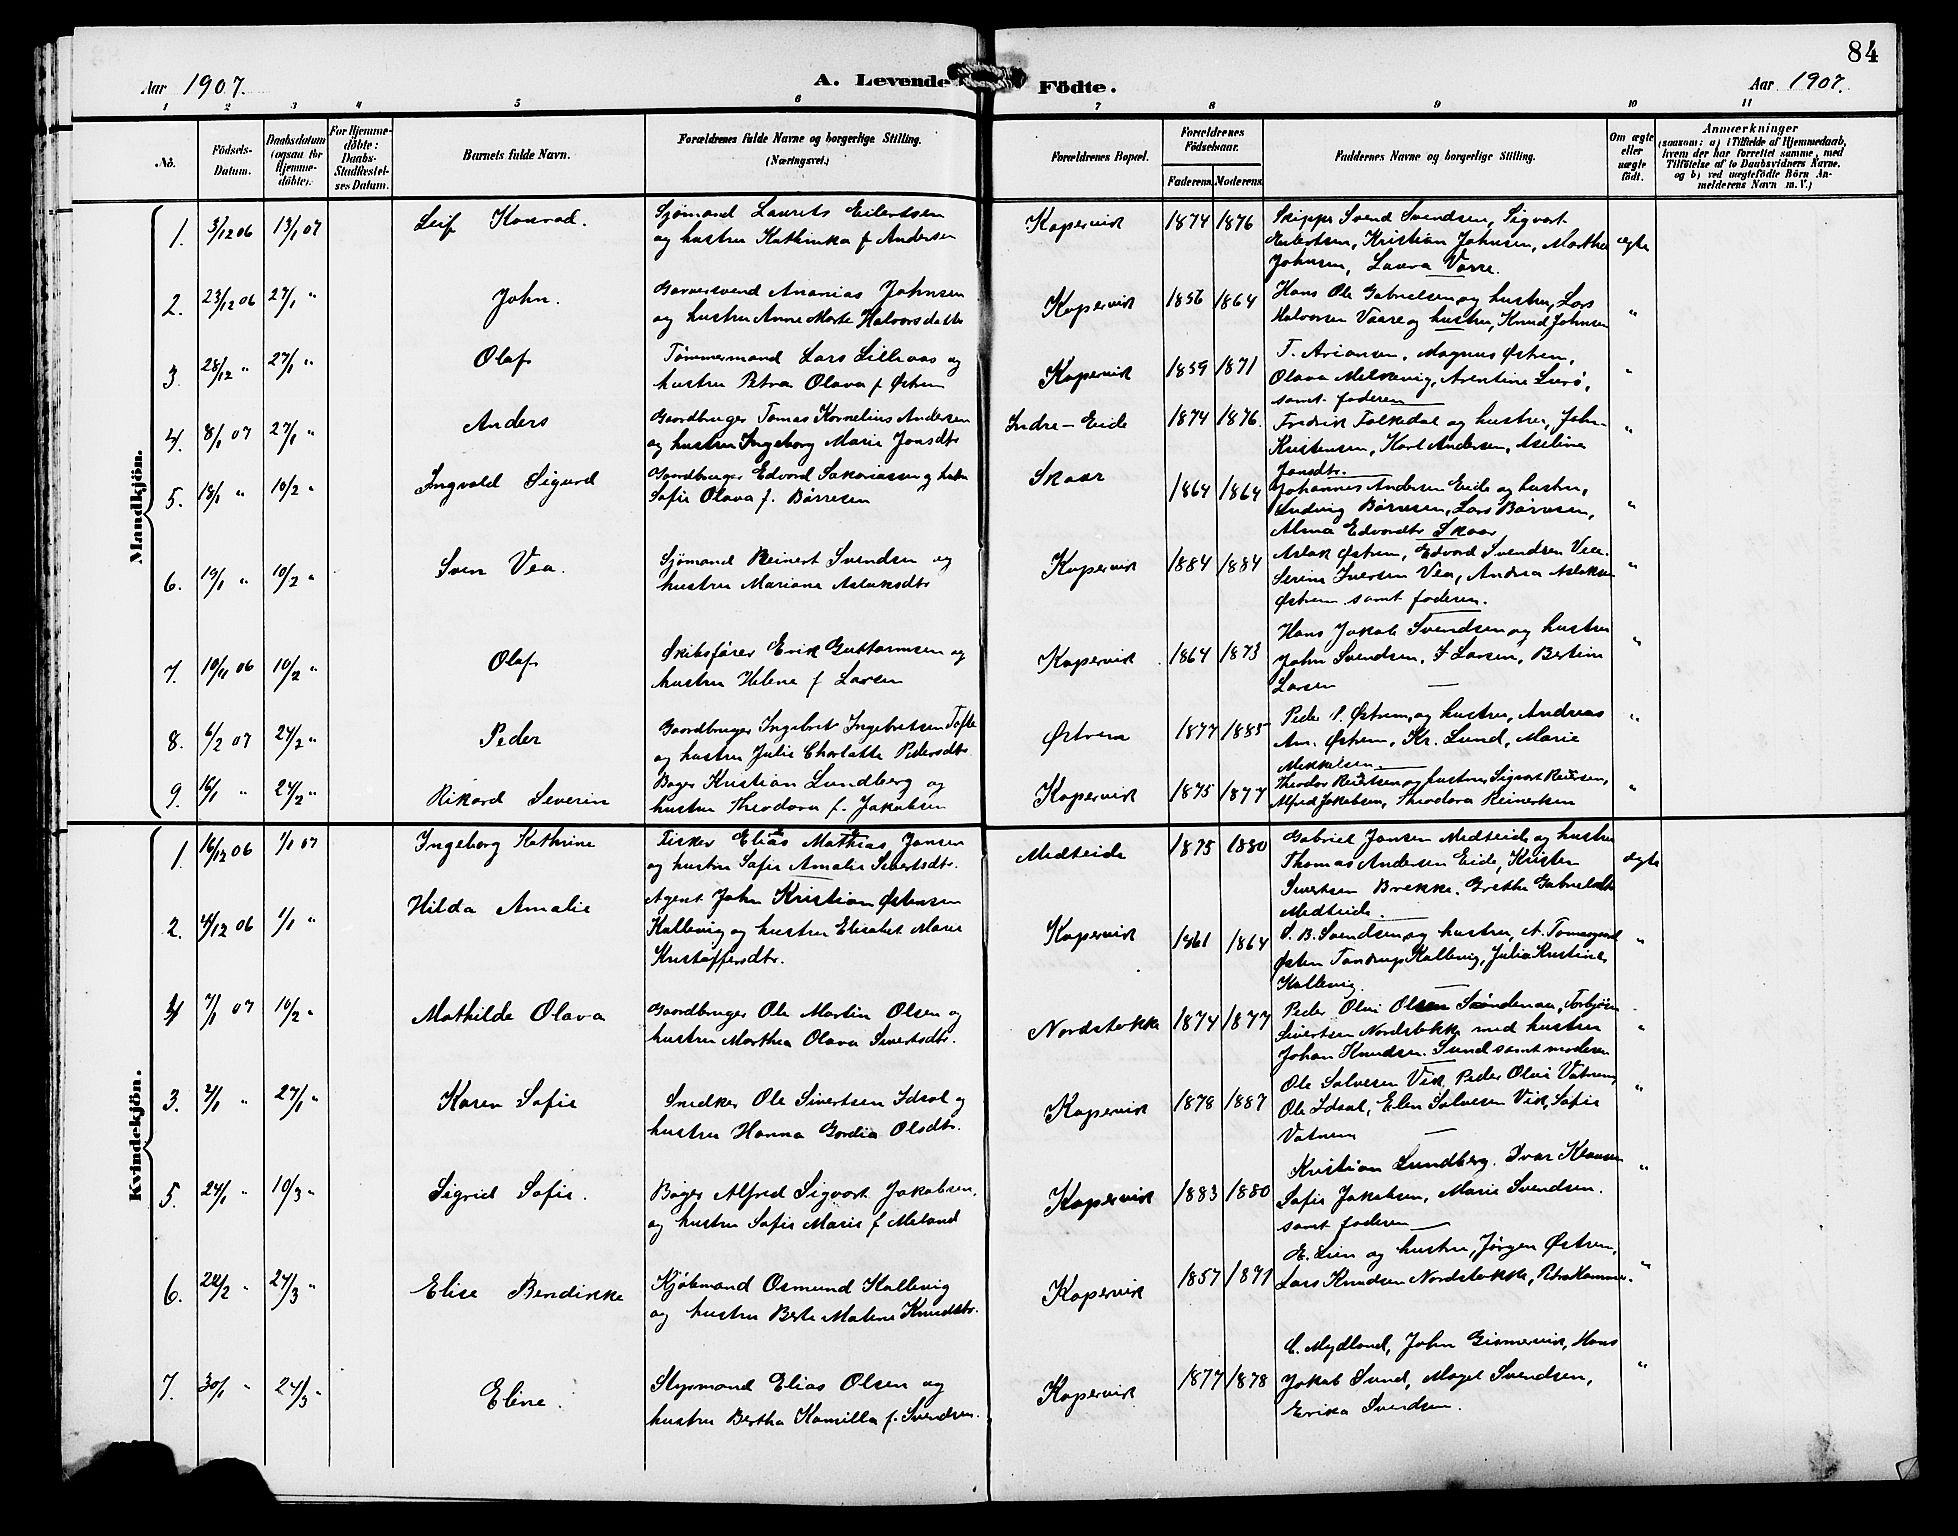 84
Aar 1907. A. Levende Födte. Aar 1907.
1 2 3 4 5 6 7 8 9 10 11
No. Födsels-Datum. Daabsdatum (ogsaa for Hjemmedöbte). For Hjemmedöbte: Daabs-Stadfæstelses Datum. Barnets fulde Navn. Forældrenes fulde Navne og borgerlige Stilling. (Næringsvei.) Forældrenes Bopæl. Forældrenes Födselsaar. Faderens. Moderens. Faddernes Navne og borgerlige Stilling. Om ægte eller uægte födt. Anmærkninger (saasom: a) i Tilfælde af Hjemmedaab, hvem der har forrettet samme, med Tilföielse af to Daabsvidners Navne, og b) ved uægtefödte Börn Anmelderens Navn m. V.)
Mandkjön.
1. 3/12 06 13/1 07 Leif Konrad. Sjømand Laurits Eilertsen Kopervik 1874 1876 Skipper Svend Svendsen, Sigvart
og hustru Kathinka f Andersen Eilertsen, Kristian Johnsen, Marthe ægte
Johnsen, Laura Varre.
2. 23/12 06 27/1 " John. Garversvend Ananias Johnsen Kopervik 1856 1864 Hans Ole Gabrielsen og hustru, Lars
og hustru Anne Marte Halvorsdatter Halvorsen Vaare og hustru, Knud Johnsen "
3. 28/12 " 27/1 " Olaf Tømmermand Lars Lillraas og Kopervik 1859 1871 T. Ariansen, Magnus Østrem,
hustru Petra Olava f Østrem Olava Melkevig, Arentine Lurø, "
samt faderen
4. 8/1 07 27/1 " Anders Gaardbruger Tomas Kornelius Andersen Indre-Eide 1874 1876. Fredrik Falkedal og hustru, John
og hustru Ingeborg Marie Jonsdtr Kristensen, Karl Andersen, Aseline "
Jonsdtr.
5. 13/1 " 10/2 " Ingvald Sigurd Gaardbruger Edvard Sakariassen og hustru Skaar 1864 1864 Johannes Andersen Eide og hustru,
Sofie Olava f. Børresen Ludvig Børresen, Lars Børresen, "
Alma Edvardtr Skaar
6. 19/1 " 10/2 " Sven Vea. Sjømand Reinert Svendsen og Kopervik 1884 1884 Aslak Østrem, Edvard Svendsen Vea.
hustru Mariane Aslaksdtr Serine Iversen Vea, Andrea Aslaksen "
Østrem samt faderen.
7. 10/11 06 10/2 " Olaf Skibsfører Erik Guttormsen og Kopervik 1864 1873 Hans Jakob Svendsen og hustru
hustru Helene f Larsen John Svendsen, S Larsen, Bertine "
Larsen
8. 6/2 07 24/2 " Peder Gaardbruger Ingebret Ingebretsen Tofte Østrem 1877 1885 Peder P. Østrem, og hustru, Andreas "
og hustru Julie Charlatte Pedersdtr An. Østrem, Kr. Lund, Marie
Mikkelsen.
9. 16/1 " 24/2 " Rikard Severin Bager Kristian Lundberg og Kopervik 1875 1877 Theodor Reiertsen og hustru Sigvart Reiersen,
hustru Theodora f. Jakobsen Alfred Jakobsen, Theodora Reinertsen "
Kvindekjön.
1. 16/12 06 1/1 07 Ingeborg Kathrine Fisker Elias Mathias Jansen Medteide 1875 1880 Gabriel Jansen Medteide og hustru
og hustru Sofie Amalie Sivertsdtr. Thomas Andersen Eide, Kristen ægte
Sivertsen Brekke. Grethe Gabrielsdtr
Medteide.
2. 4/12 06 1/1 " Hilda Amalie Agent John Kristian Østensen Kopervik 1861 1864 S. B. Svendsen og hustru, A. Tomasgaard
Kallevig og hustru Elisabet Marie Østen Tandrup Kallevig, Julia Kristine "
Kristoffersdtr. Kallevig.
4 7/1 07 10/2 " Mathilde Olava Gaardbruger Ole Martin Olsen og Nordstokke 1874 1877 Peder Olai Olsen Søndenaa, Torbjørn
hustru Marthea Olava Sivertsdtr. Sivertsen Nordstokke med hustru "
Johan Knudsen. Sund samt moderen
3. 2/1 " 27/1 " Karen Sofie Snedker Ole Sivertsen Idsal og Kopervik 1878 1887 Ole Salvesen Vik, Peder Olai Vatnem,
hustru Hanna Gordia Olsdtr. Ole Idsal, Elen Salvesen Vik, Sofie "
Vatnem
5 24/1 " 10/3 " Sigrid Sofie. Bager Alfred Sigvart Jakobsen, Kopervik 1883 1880 Kristian Lundberg. Ivar Klausen
og hustru Sofie Marie f Meland Sofie Jakobsen, Marie Svendsen. "
samt faderen
6. 22/2 " 24/3 " Elise Bendikke Kjøbmand Osmund Hallevig Kopervik 1857 1871 E. Lien og hustru, Jørgen Østrem,
og hustru Berte Malene Knudsdtr. Lars Knudsen Nordstokke, Petra Hammer. "
7. 30/1 " 24/3 " Eline. Styrmand Elias Olsen og Kopervik 1877 1878 C. Mydland, John Gismervik, Hans
hustru Bertha Kamilla f. Svendsen. Jakob Sund, Maget Svendsen, "
Erika Svendsen.